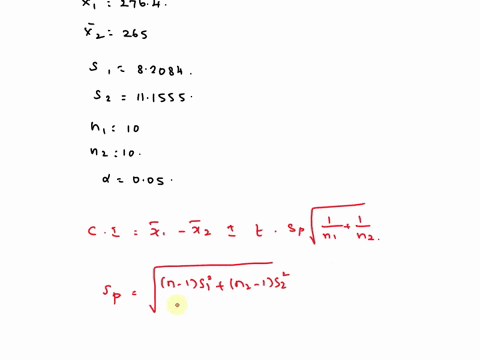 x̄₁ = 276.4.
x̄₂ = 265
s₁ = 8.2084.
s₂ = 11.1555.
n₁ : 10
n₂ : 10.
α = 0.05.
C.I = x̄₁ - x̄₂ ± t . sp √(1/n₁ + 1/n₂).
sp = √((n-1)s₁² + (n₂-1)s₂²